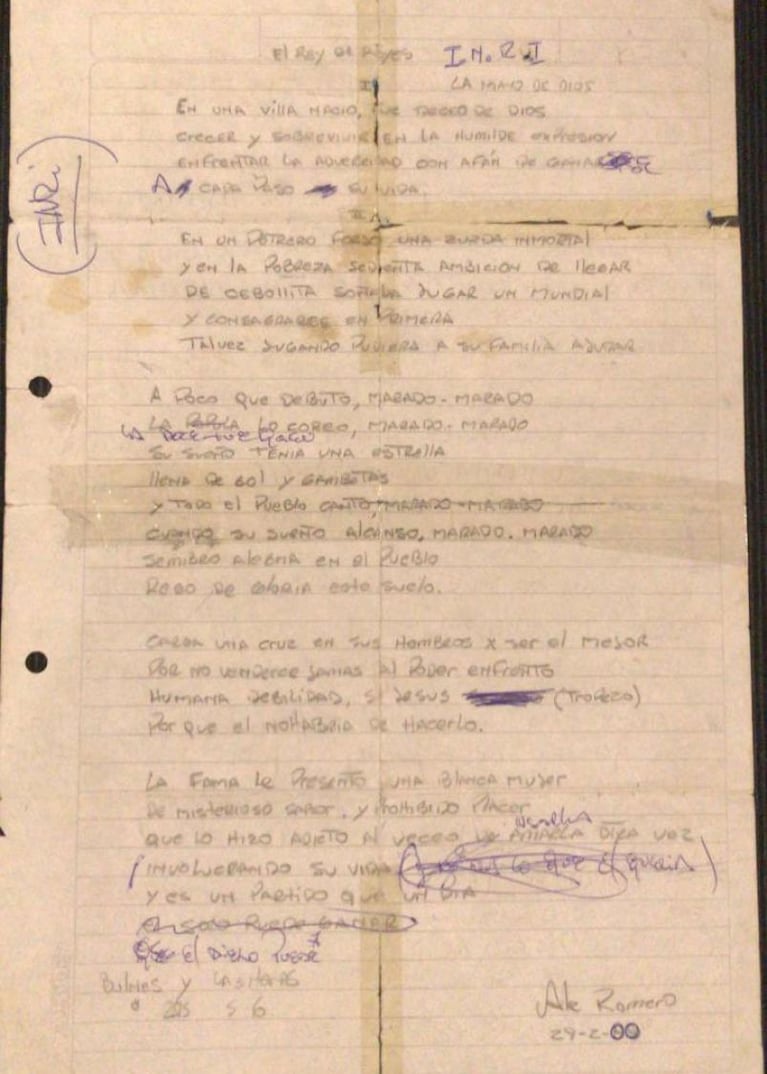 El Rey de Reyes I.N.R.I
LA MANO DE DIOS
(INRi)
I
EN UNA VillA NACIO, FUE DESEO DE DIOS
CRECER Y SOBREVIVIR EN LA HUMILDE EXPRESION
ENFRENTAR LA ADVERCIDAD CON AFÁN DE GANARSE
A CADA PASO SU VIDA.
II
EN UN POTRERO FORJO UNA ZURDA INMORTAl
Y EN lA POBREZA SEDIENTA AMBICION DE llEGAR
DE CEBOllITA SOÑABA JUGAR UN MUNDIAl
Y CONSAGRARCE EN PRIMERA
TAlVEZ JUGANDO PUDIERA A SU FAMILIA AJUDAR
A POCO QUE DEBUTO, MARADO-MARADO
LA LO COREO, MARADO-MARADO
LA Doce FUE QUIEN
SU SUEÑO TENIA UNA ESTRELLA
llENA DE GOl Y GAMBETAS
Y TODO El PUEBLO CANTO, MARADO-MARADO
CUANDO SU SUEÑO AlCANSO, MARADO. MARADO
SEMBRO AlEGRIA EN El PUEBLO
REGO DE GlORIA ESTE SUELO.
CARGA UNA CRUZ EN SUS HOMBROS X SER El MEJOR
POR NO VENDERCE JAMAS Al PODER ENFRENTO
HUMANA DEBILIDAD, SI JESUS (TROPEZO)
POR QUE El NO HABRIA DE HACERLO.
LA FAMA LE PRESENTO UNA BLANCA MUJER
DE MISTERIOSO SABOR Y PROHIBIDO PLACER
QUE LO HIZO ADICTO Al DESEO DE USARLA OTRA VEZ
INVOLUCRANDO SU VIDA
Y ES UN PARTIDO QUE UN DIA
El SOLO PUEDE GANAR
Bulnes y LAS HERAS
Ale Romero
29-2-00